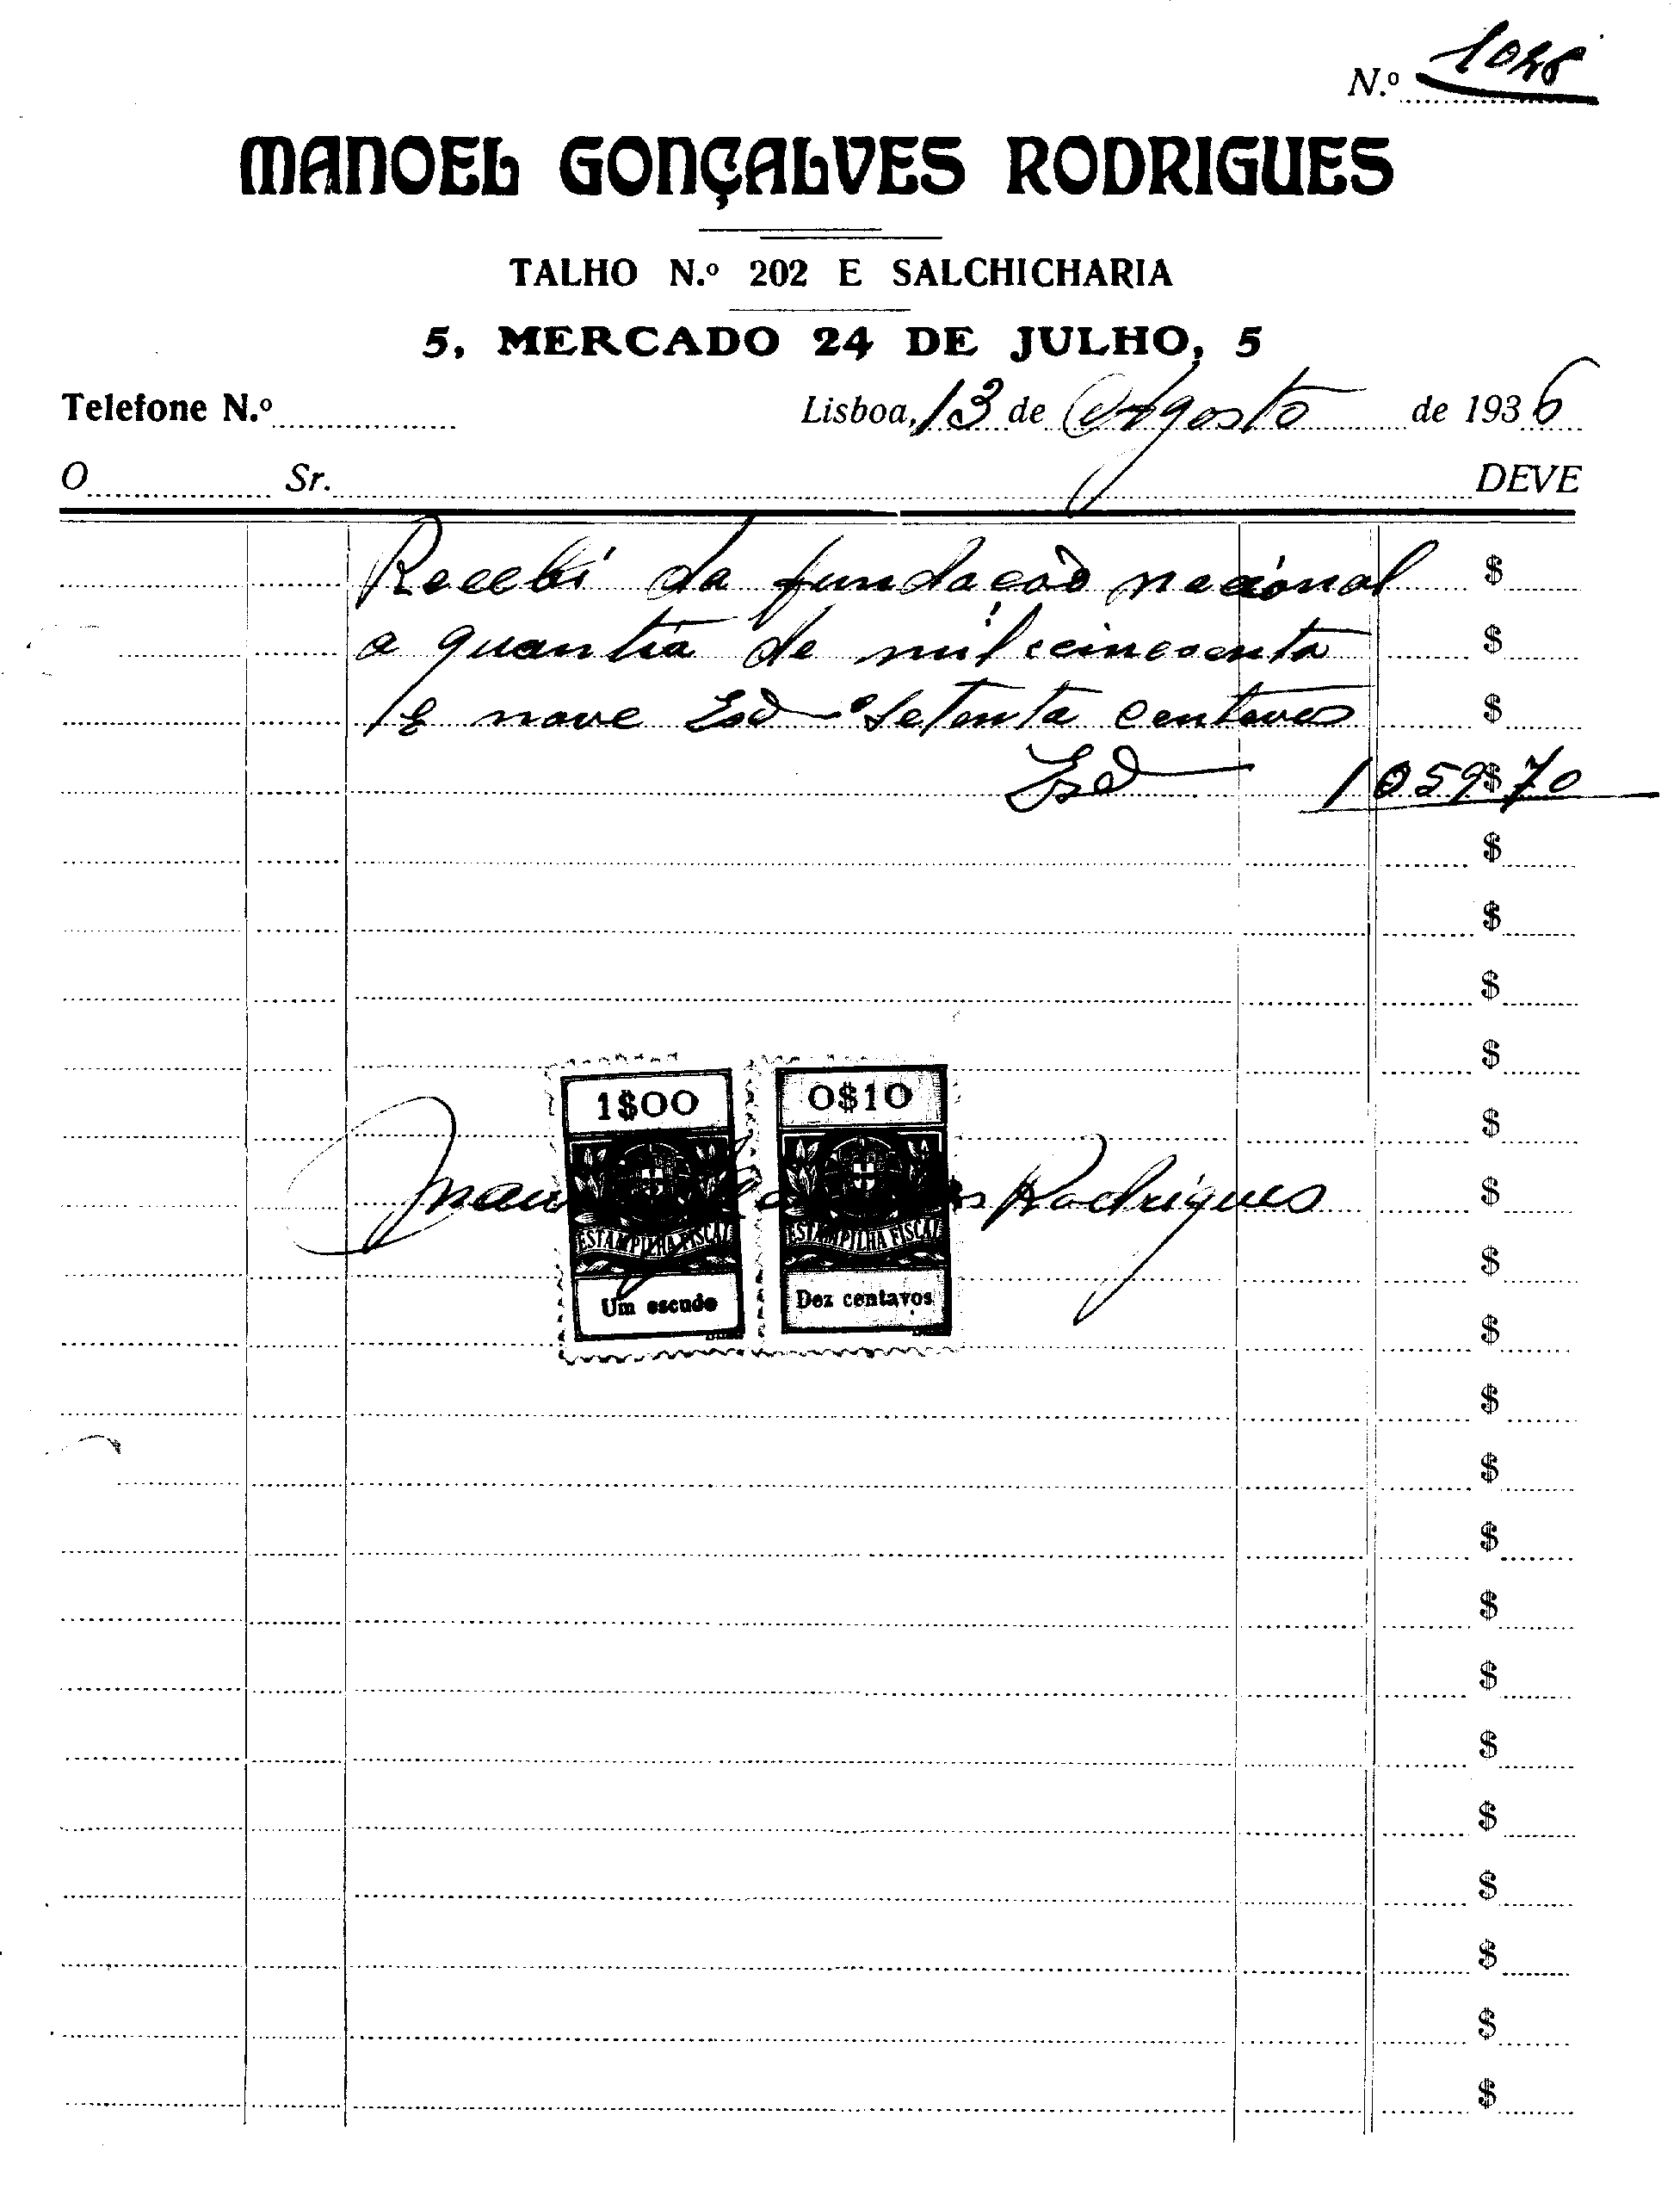 N.º
MANOEL GONÇALVES RODRIGUES
TALHO N.º 202 E SALCHICHARIA
5, MERCADO 24 DE JULHO, 5
Telefone N.º
Lisboa, 13 de Agosto de 1936
O Sr. DEVE
Recebi da fundacaò nacional $
a quantia de mil cincoenta $
e nove Esd e setenta centavos $
Esd 1059$70
$
$
$
$
1$00 0$10
$
Rodrigues $
ESTAMPILHA FISCAL ESTAMPILHA FISCAL
$
Um escudo Dez centavos
$
$
$
$
$
$
$
$
$
$
$
$